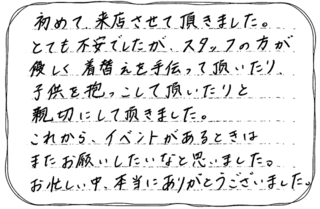 初めて、来店させて頂きました。
とても不安でしたが、スタッフの方が
優しく着替えを手伝って頂いたり、
子供を抱っこして頂いたりと
親切にして頂きました。
これから、イベントがあるときは
またお願いしたいなと思いました。
お忙しい中、本当にありがとうございました。